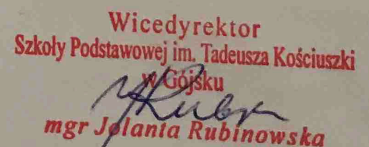 Wicedyrektor
Szkoły Podstawowej im. Tadeusza Kościuszki
w Gójsku
mgr Jolanta Rubinowska